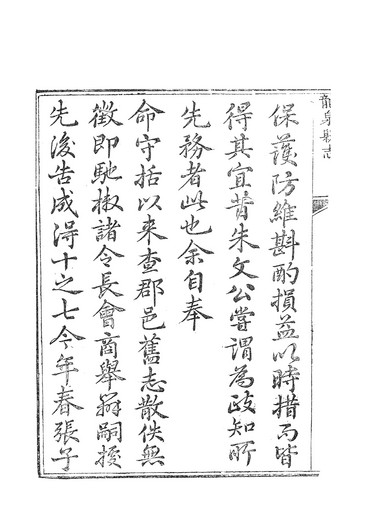 龍泉縣志
保護防維斟酌損益以時措而皆
得其宜昔朱文公嘗謂為政知所
先務者此也余自奉
命守括以來查郡邑舊志散佚無
徵即馳檄諸令長會商舉辦嗣接
先後告成得十之七今年春張子